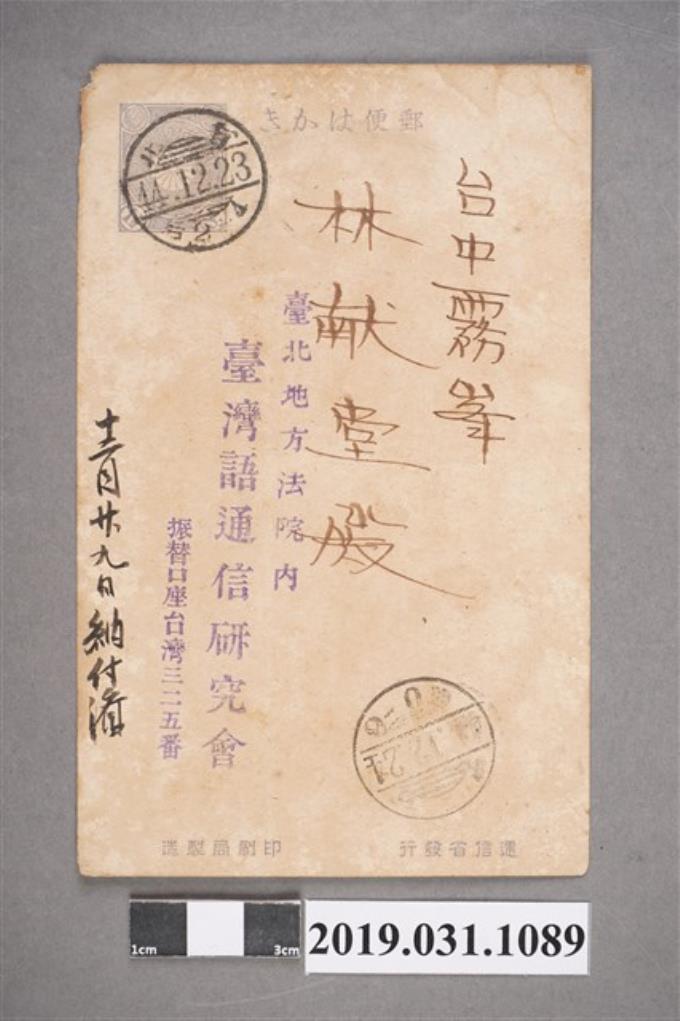 郵便はかき
台中霧峯
林献堂殿
臺北地方法院內
臺灣語通信研究會
振替口座台灣三二五番
十二月廿九日納付濟
14.12.23
遞信省發行
印刷局製造
1cm
3cm
2019.031.1089